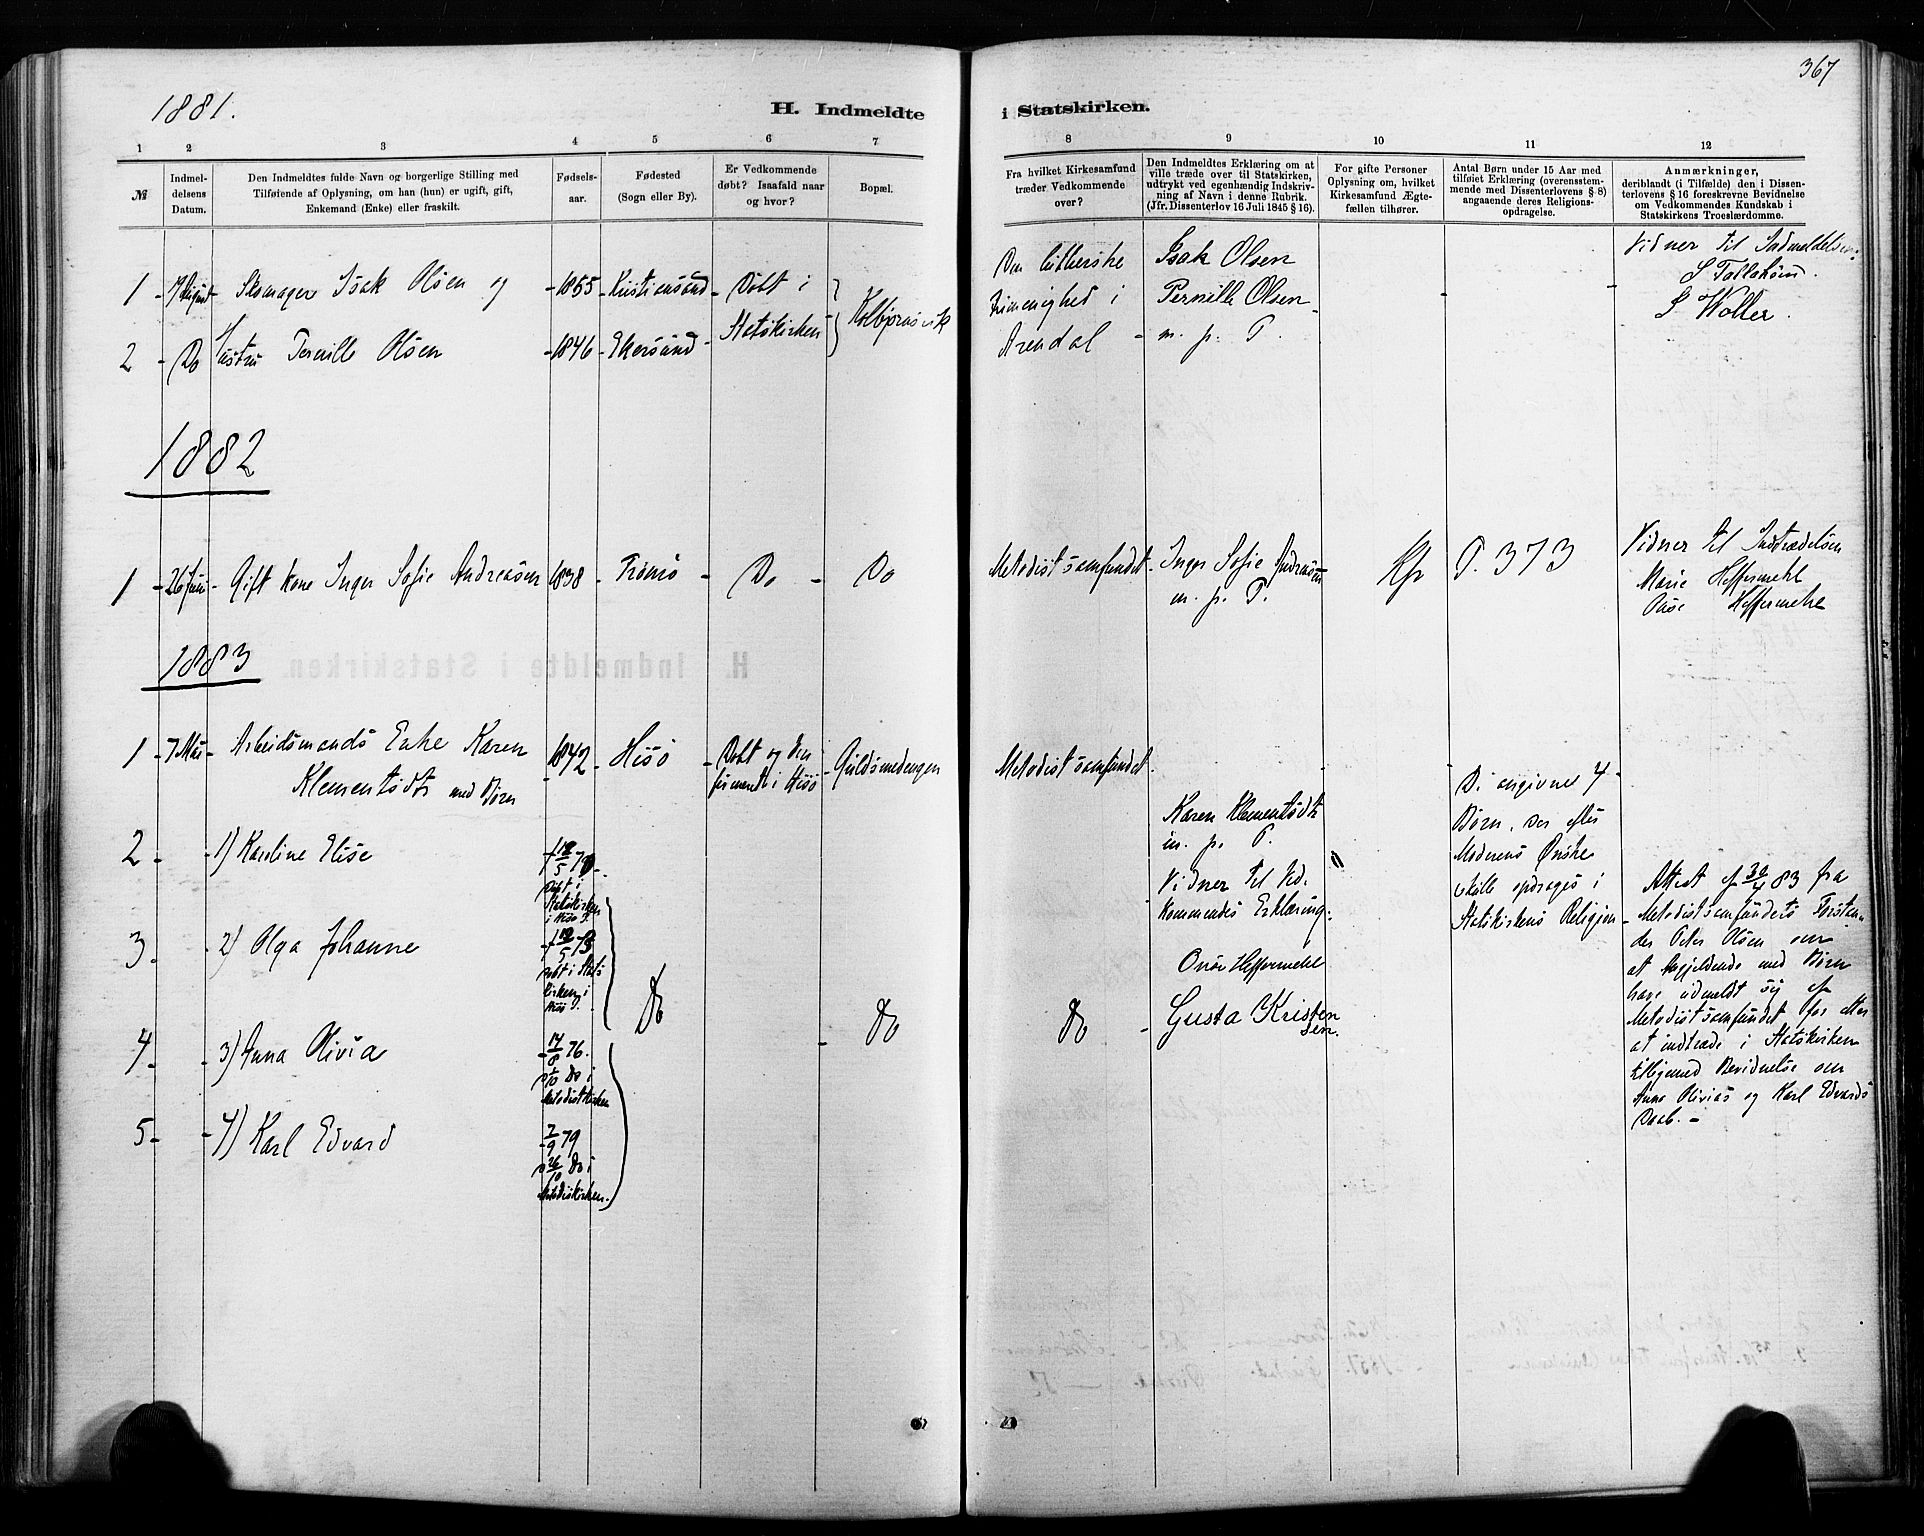 367
1881.
H. Indmeldte i Statskirken.
1 2 3 4 5 6 7 8 9 10 11 12
№
Indmel-
delsens
Datum.
Den Indmeldtes fulde Navn og borgerlige Stilling med
Tilføiende af Oplysning, om han (hun) er ugift, gift,
Enkemand (Enke) eller fraskilt.
Fødsels-
aar.
Fødested
(Sogn eller By).
Er Vedkommende
døbt? Isaafald naar
og hvor?
Bopæl.
Fra hvilket Kirkesamfund
træder Vedkommende
over?
Den Indmeldtes Erklæring om at
ville træde over til Statskirken,
udtrykt ved egenhændig Indskriv-
ning af Navn i denne Rubrik.
(Jfr. Dissenterlov 16 Juli 1845 § 16).
For gifte Personer
Oplysning om, hvilket
Kirkesamfund Ægte-
fællen tilhører.
Antal Børn under 15 Aar med
tilføiet Erklæring (overensstem-
mende med Dissenterlovens § 8)
angaaende deres Religions-
opdragelse.
Anmærkninger,
deriblandt (i Tilfælde) den i Dissen-
terlovens § 16 foreskrevne Bevidnelse
om Vedkommendes Kundskab i
Statskirkens Troeslærdomme.
1 - 17 August - Skomager Isak Olsen og - 1855 - Kristiansand - Døbt i
Statskirken
Kolbjørnsvik
Den lutherske
Frimenighed i
Arendal -
Isak Olsen
Pernille Olsen
m. p. P.
Vidner til Indmeldelsen:
S Woller.
2 - Do Hustru Pernille Olsen - 1846 - Ekersund -
1882
1 - 26 Juni - Gift Kone Inger Sofie Andreasen 1838 - Tromö - Do - Do
Metodistsamfundet - Inger Sofie Andreasen
m. p. P.
Kfr P. 373
Vidner til Indtrædelsen
Marie Heffermehl
Onse Heffermehl
1883
H. Indmeldte i Statskirken.
1 - 7 Mai - Arbeidsmands Enke Karen
Klementsdtr med Børn
1842 - Hisö - Døbt og
i Hisö
Guldsmedengen
Metodistsamfundet
Karen Klementsdtr
m. p. P.
Vidner til Ved-
kommendes Erklæring:
Onse Heffermehl
Gusta Kristen
sen.
De angivne 4
Børn, der efter
Moderens Ønske
skulle opdrages i
Statskirkens Religion
Attest af 30/4 83 fra
Metodistsamfundets Forstan-
der Peter Olsen om
at Angjeldende med Børn
have udmeldt sig af
Metodistsamfundet for atter
at indtræde i Statskirken
tilligemed Bevidnelse om
Anna Olivias og Karl Edvards
Daab. -
2 - - 1) Karoline Elise
Døbt i
Statskirken
i Hisö
3 - - 2) Olga Johanne
Døbt i Stats
kirken i
Hisö
Do Do Do
4 - - 3) Anna Olivia - 14/8 76.
Do i
Metodistkirken
5 - - 4) Karl Edvard - 2/9 79
26/10 Do i
Metodistkirken.